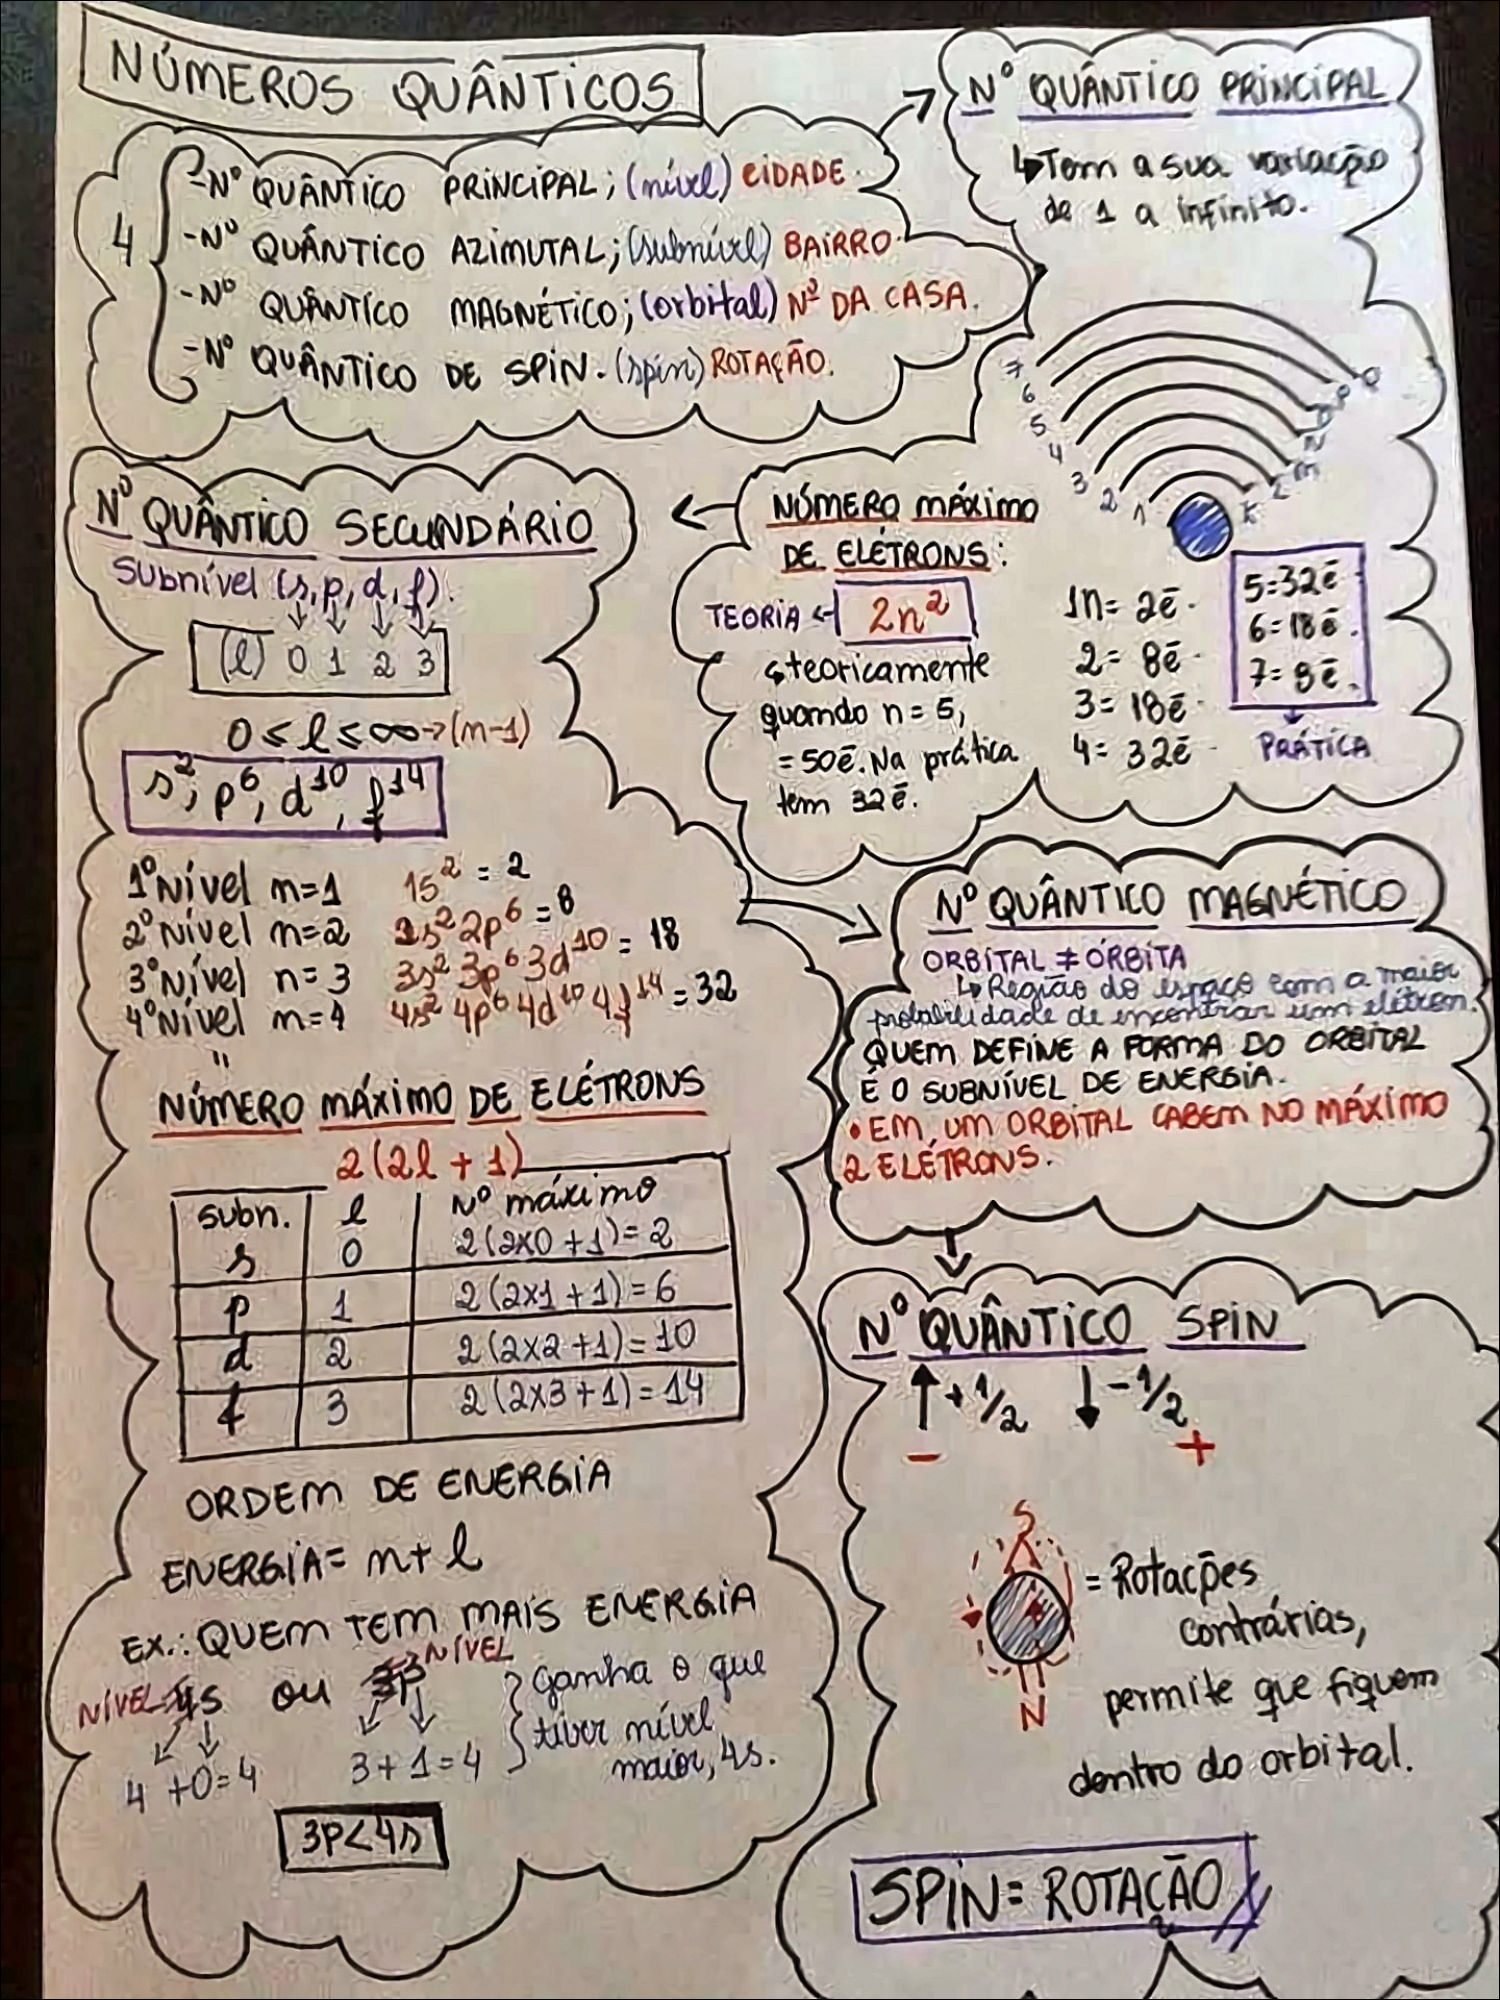 NÚMEROS QUÂNTICOS
4
-Nº QUÂNTICO PRINCIPAL; (nível) CIDADE.
-Nº QUÂNTICO AZIMUTAL; (subnível) BAIRRO.
-Nº QUÂNTICO MAGNÉTICO; (orbital) Nº DA CASA.
-Nº QUÂNTICO DE SPIN. (spin) ROTAÇÃO.
Nº QUÂNTICO PRINCIPAL
↳Tem a sua variação
de 1 a infinito.
7 6 5 4 3 2 1
K L M N O P Q
NÚMERO MÁXIMO
DE ELÉTRONS:
TEORIA ← 2n²
↳teoricamente
quando n = 5,
= 50ē. Na prática
tem 32ē.
1n = 2ē.
2 = 8ē.
3 = 18ē.
4 = 32ē.
5=32ē
6=18ē.
7=8ē.
PRÁTICA
Nº QUÂNTICO SECUNDÁRIO
Subnível (s, p, d, f).
(l) 0 1 2 3
0 ≤ l ≤ ∞→(n-1)
s², p⁶, d¹⁰, f¹⁴
1º Nível n=1 1s² = 2
2º Nível n=2 2s² 2p⁶ = 8
3º Nível n=3 3s² 3p⁶ 3d¹⁰ = 18
4º Nível n=4 4s² 4p⁶ 4d¹⁰ 4f¹⁴ = 32
"
NÚMERO MÁXIMO DE ELÉTRONS
2(2l + 1)
subn. l Nº máximo
s 0 2(2x0+1)=2
p 1 2(2x1+1)=6
d 2 2(2x2+1)=10
f 3 2(2x3+1)=14
ORDEM DE ENERGIA
ENERGIA= n+l
EX.: QUEM TEM MAIS ENERGIA
NÍVEL 4s ou 3p NÍVEL
4 +0=4 3+1=4
Ganha o que
tiver nível
maior, 4s.
3P<4s
Nº QUÂNTICO MAGNÉTICO
ORBITAL ≠ ÓRBITA
↳ Região do espaço com a maior
probabilidade de encontrar um elétron.
QUEM DEFINE A FORMA DO ORBITAL
É O SUBNÍVEL DE ENERGIA.
• EM UM ORBITAL CABEM NO MÁXIMO
2 ELÉTRONS.
Nº QUÂNTICO SPIN
↑+1/2 ↓-1/2
- +
S
N
= Rotações
contrárias,
permite que fiquem
dentro do orbital.
SPIN= ROTAÇÃO